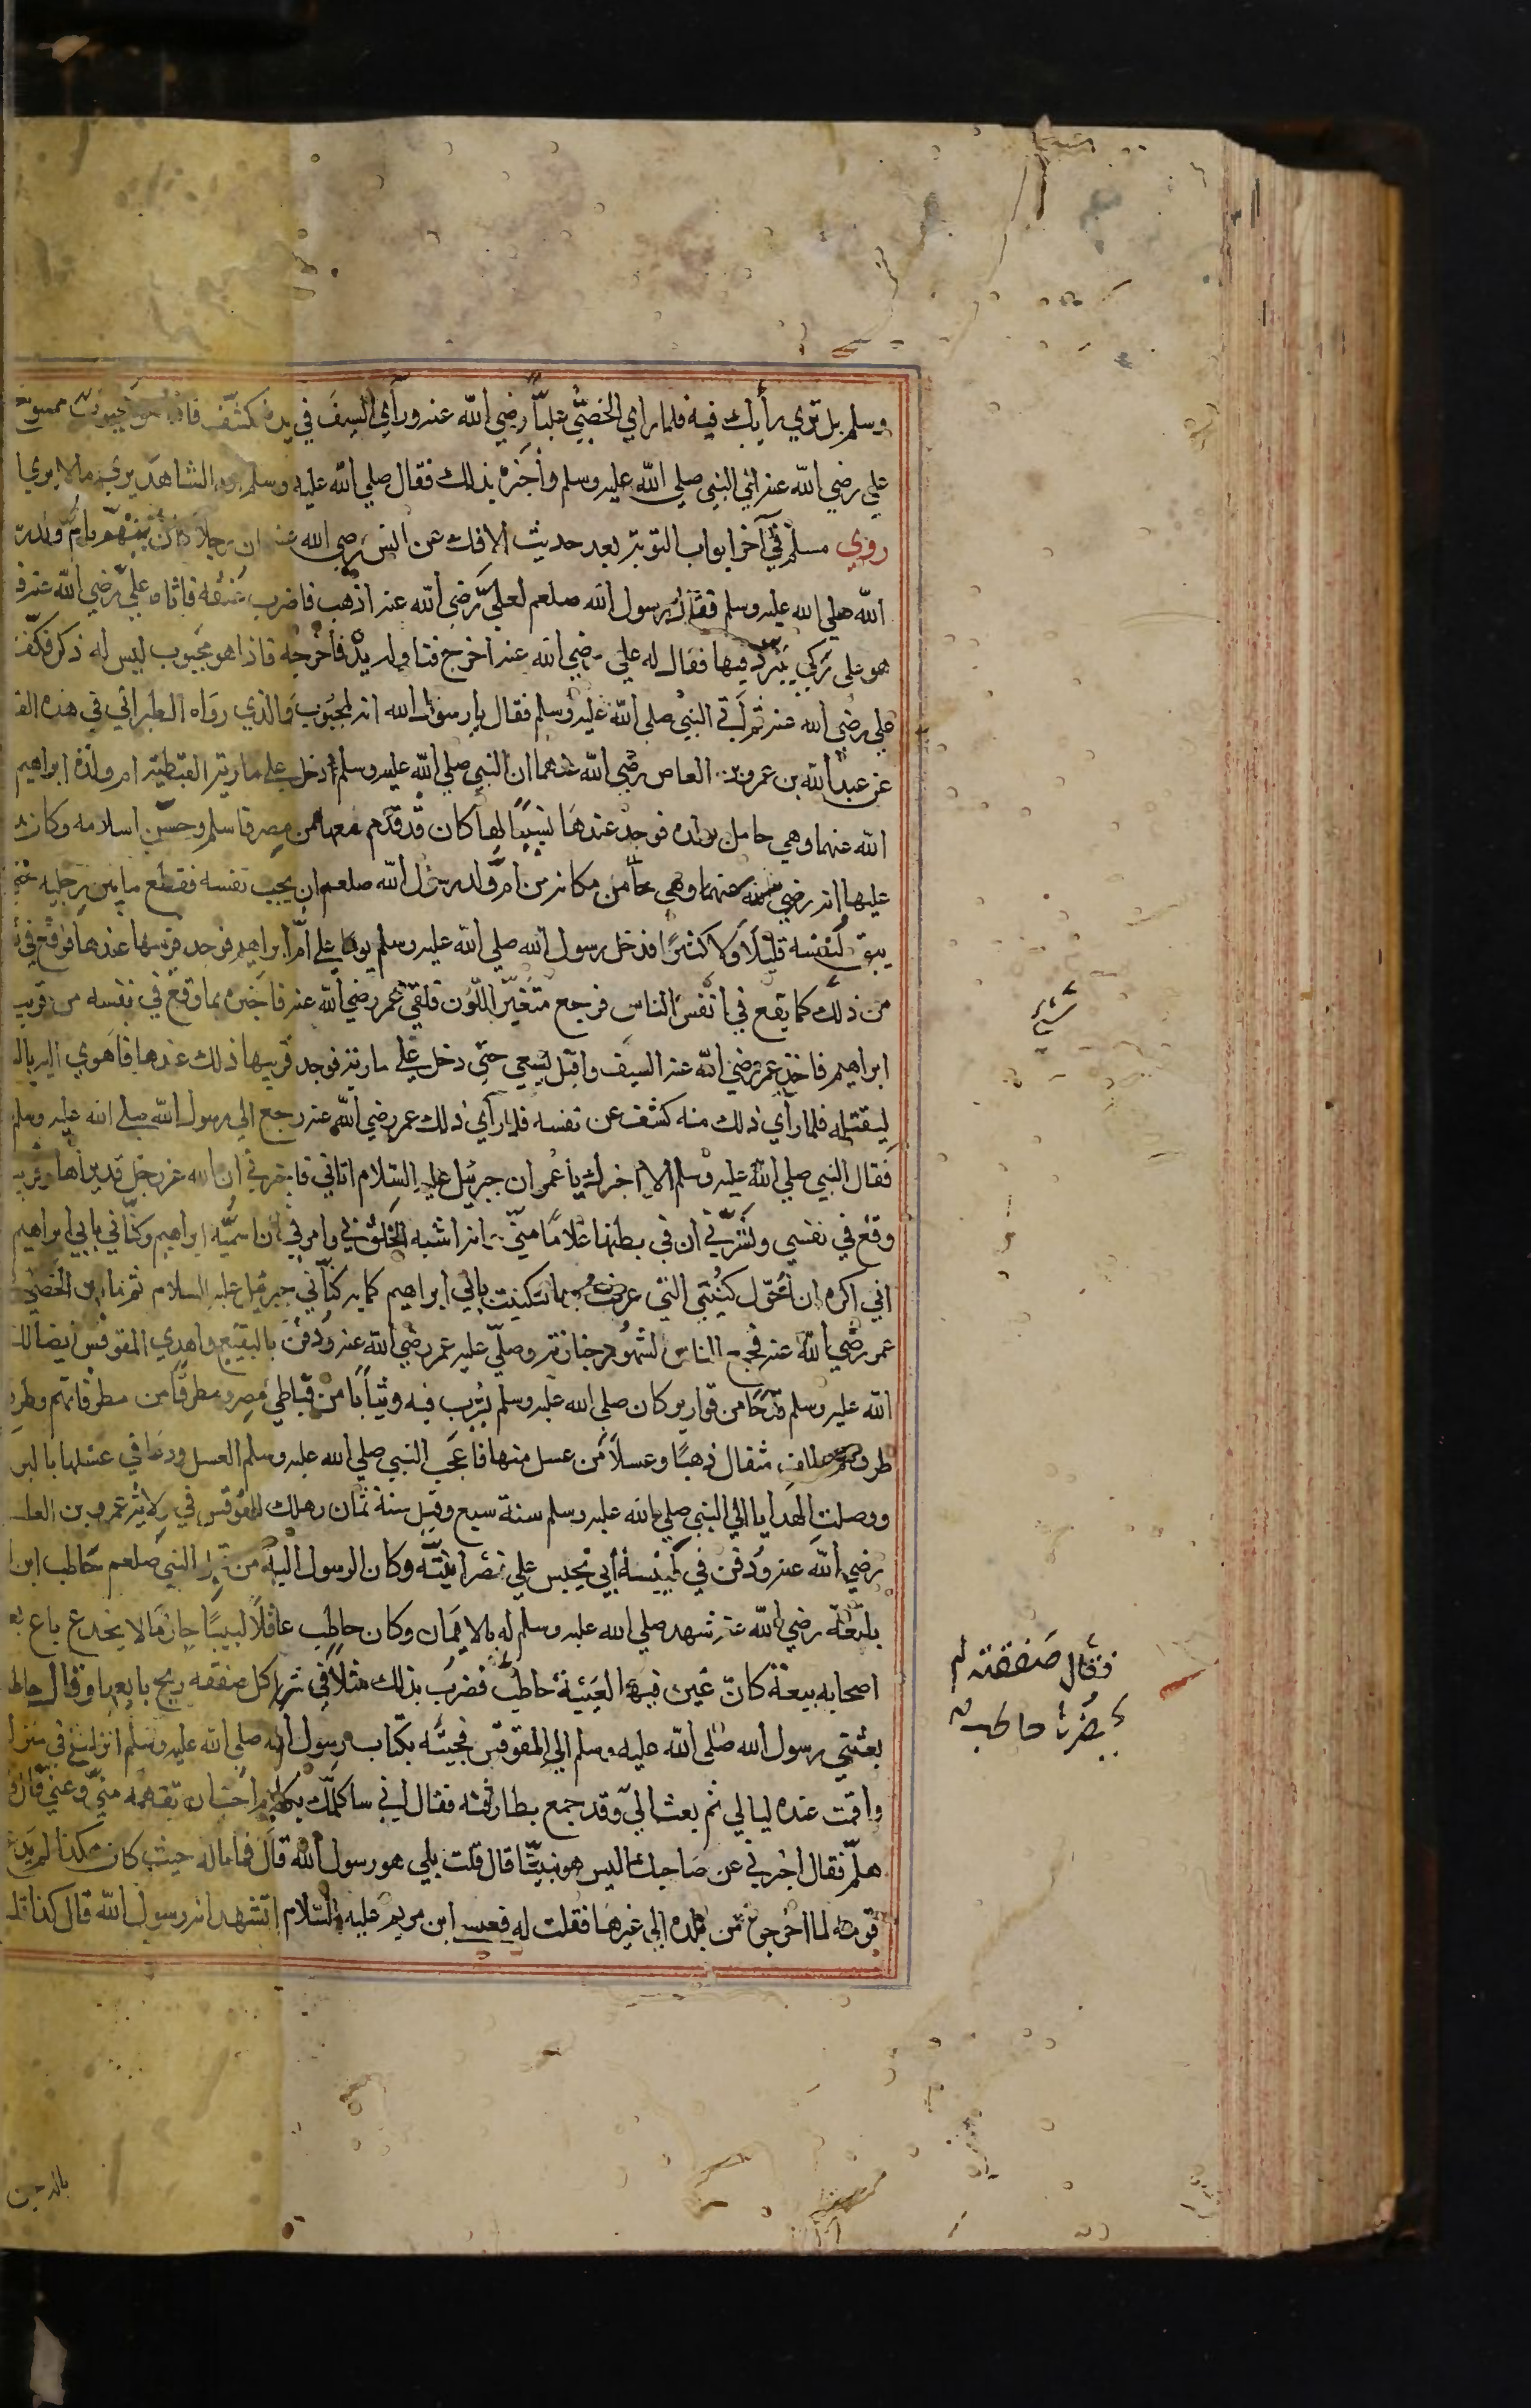 وسلم بل تري رأيك فيه فلما راي الخصيّ عليّاً رضي الله عنه ورأي السيف في يده كشّف فاذا هو مجبوب ممسوح
علي رضي الله عنه اتي النبي صلي الله عليه وسلم وأخبره بذلك فقال صلي الله عليه وسلم ان الشاهد يري ما لا يري ا
روي مسلم في آخر ابواب التوبة بعد حديث الافك عن انس رضي الله عنه ان رجلا كان يتهم بام ولد
الله صلي الله عليه وسلم فقال رسول الله صلعم لعليّ رضي الله عنه اذهب فاضرب عنقه فاتاه علي رضي الله عنه فـ
هو علي ركي يتبرّد فيها فقال له علي رضي الله عنه اخرج فناوله يده فأخرجه فاذا هو مجبوب ليس له ذكر فكفّ
علي رضي الله عنه ثم اتي النبي صلي الله عليه وسلم فقال يا رسول الله انه لمجبوب والذي رواه الطبراني في هذه القـ
عن عبد الله بن عمرو بن العاص رضي الله عنهما ان النبي صلي الله عليه وسلم دخل علي مارية القبطية ام ولده ابراهيم
الله عنهما وهي حامل بولده فوجد عندها نسيبًا لها كان قد قدم معها من مصر فاسلم وحسن اسلامه وكان
عليها انه رضي من مكانه من ام ولد رسول الله صلعم ان يجب نفسه فقطع ما بين رجليه حتي
يبق لنفسه قليلاً ولا كثيرًا فدخل رسول الله صلي الله عليه وسلم يوما علي أم ابراهيم فوجد قريبها عندها فوقع في
من ذلك كما يقع في انفس الناس فرجع متغيّر اللون فلقي عمر رضي الله عنه فاخبره بما وقع في نفسه من قريب
ابراهيم فاخذ عمر رضي الله عنه السيف واقبل يسعي حتي دخل علي مارية فوجد قريبها ذلك عندها فاهوي اليه بالـ
ليقتله فلما رأي ذلك منه كشف عن نفسه فلما رأي ذلك عمر رضي الله عنه رجع الي رسول الله صلي الله عليه وسلم
فقال النبي صلي الله عليه وسلم الا اخبرك يا عمر ان جبرئيل عليه السلام اتاني فاخبرني ان الله عز وجل قد برأها وقريبـ
وقع في نفسي وبشّرني ان في بطنها غلامًا منّي وانه اشبه الخلق بي وامرني ان اسميّه ابراهيم وكنّاني بابي ابراهيم
اني اكره ان أحوّل كنيتي التي عرفت بها لتكنيت بابي ابراهيم كما كنّاني جبرئيل عليه السلام ثم مات الخصي
عمر رضي الله عنه فجمع الناس لشهود جنازته وصلّي عليه عمر رضي الله عنه ودفن بالبقيع واهدي المقوقس ايضا لـ
الله عليه وسلم قدحًا من قوارير كان صلي الله عليه وسلم يشرب فيه وثياباً من قباطي مصر ومطرفًا من مطرفاتهم وطر
مثقال ذهبًا وعسلاً من عسل منها فاعجب النبي صلي الله عليه وسلم العسل ودعا في عسلها بالبر
ووصلت الهدايا الي النبي صلي الله عليه وسلم سنة سبع وقيل سنة ثمان وهلك المقوقس في ولاية عمرو بن العا
رضي الله عنه ودفن في كنيسة أبي يحنس علي نصرانيّته وكان الرسول اليه من قبل النبي صلعم حاطب ابن ا
بلتعة رضي الله عنه شهد صلي الله عليه وسلم له بالايمان وكان حاطب عاقلاً لبيبًا حازمًا لا يخدع باع بعـ
اصحابه بيعة كان غبن فيها البيّنة حاطب فضرب بذلك مثلاً في شراء كل صفقه ربح بايعها وقال حاطـ
بعثني رسول الله صلي الله عليه وسلم الي المقوقس فجيته بكتاب رسول الله صلي الله عليه وسلم انزلني في منزلـ
واقمت عنده ليالي ثم بعث اليّ وقد جمع بطارقته فقال اني ساكلّمك بكلام احب ان تفهمه منّي وعني قال
هلمّ فقال اخبرني عن صاحبك اليس هو نبيّا قال قلت بلي هو رسول الله قال فما باله حيث كان هكذا لم يدع
قومه لما اخرجوه من بلده الي غيرها فقلت له فعيسي ابن مريم عليه السلام اتشهد انه رسول الله قال كذا قلـ
فقال صفقته لم
يحضرها حاطب
بانه حين